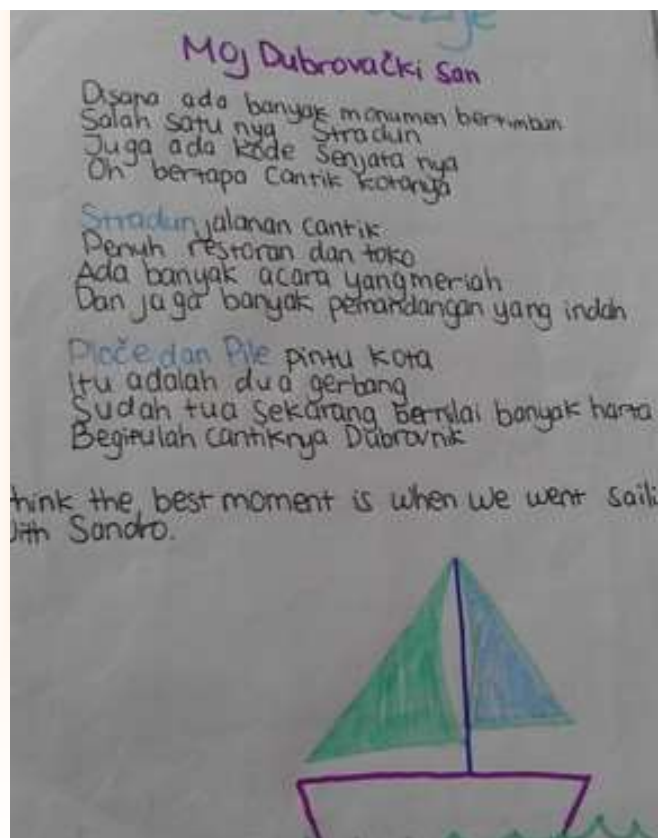 Moj Dubrovački san
Disana ada banyak monumen bertimbun
Salah satu nya Stradun
Juga ada kode senjata nya
Oh bertapa cantik kotanya
Stradun jalanan cantik
Penuh restoran dan toko
Ada banyak acara yang meriah
Dan jaga banyak pemandangan yang indah
Ploče dan Pile pintu kota
Itu adalah dua gerbang
Sudah tua sekarang bernilai banyak harta
Begitulah cantiknya Dubrovnik
think the best moment is when we went saili
with Sandro.